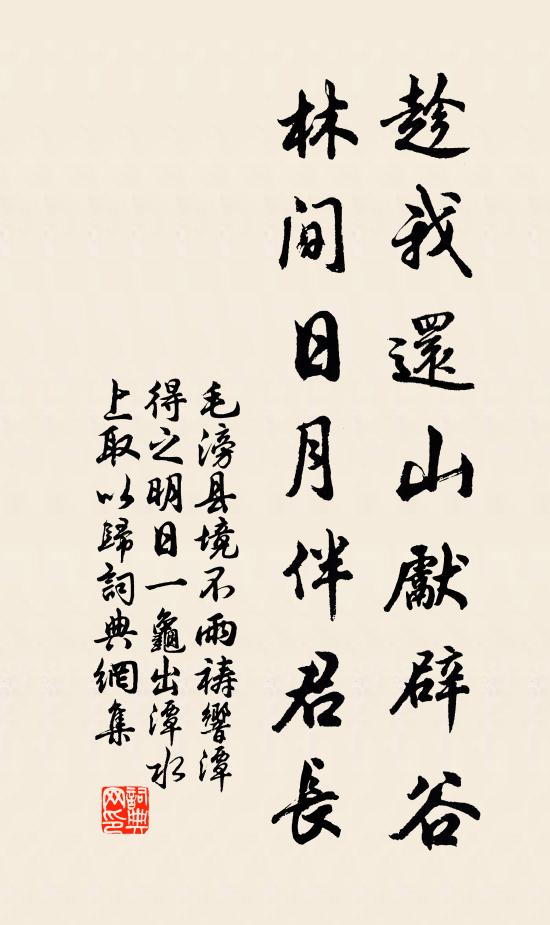 趁我還山獻辟谷
林間日月伴君長
毛滂县境不雨禱響潭
得之明日一龜出潭水
上取以歸詞典網集
詞典
网印